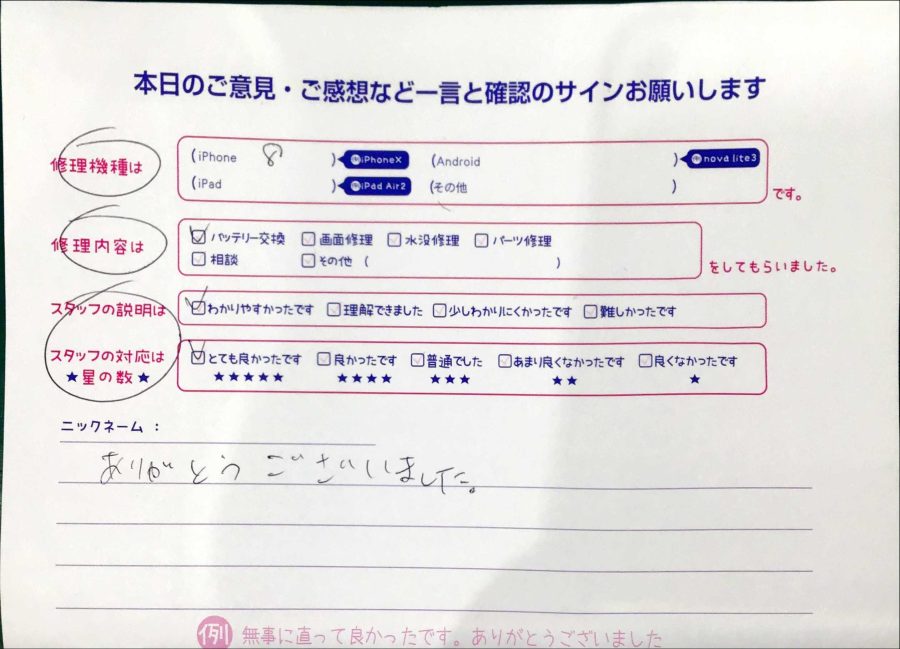 本日のご意見・ご感想など一言と確認のサインお願いします
修理機種は (iPhone 8 ) iPhoneX (Android ) nova lite3
(iPad ) iPad Air2 (その他 ) です。
修理内容は バッテリー交換 画面修理 水没修理 パーツ修理
相談 その他 ( ) をしてもらいました。
スタッフの説明は わかりやすかったです 理解できました 少しわかりにくかったです 難しかったです
スタッフの対応は とても良かったです 良かったです 普通でした あまり良くなかったです 良くなかったです
★星の数★ ★★★★★ ★★★★ ★★★ ★★ ★
ニックネーム：
ありがとうございました。
例 無事に直って良かったです。ありがとうございました